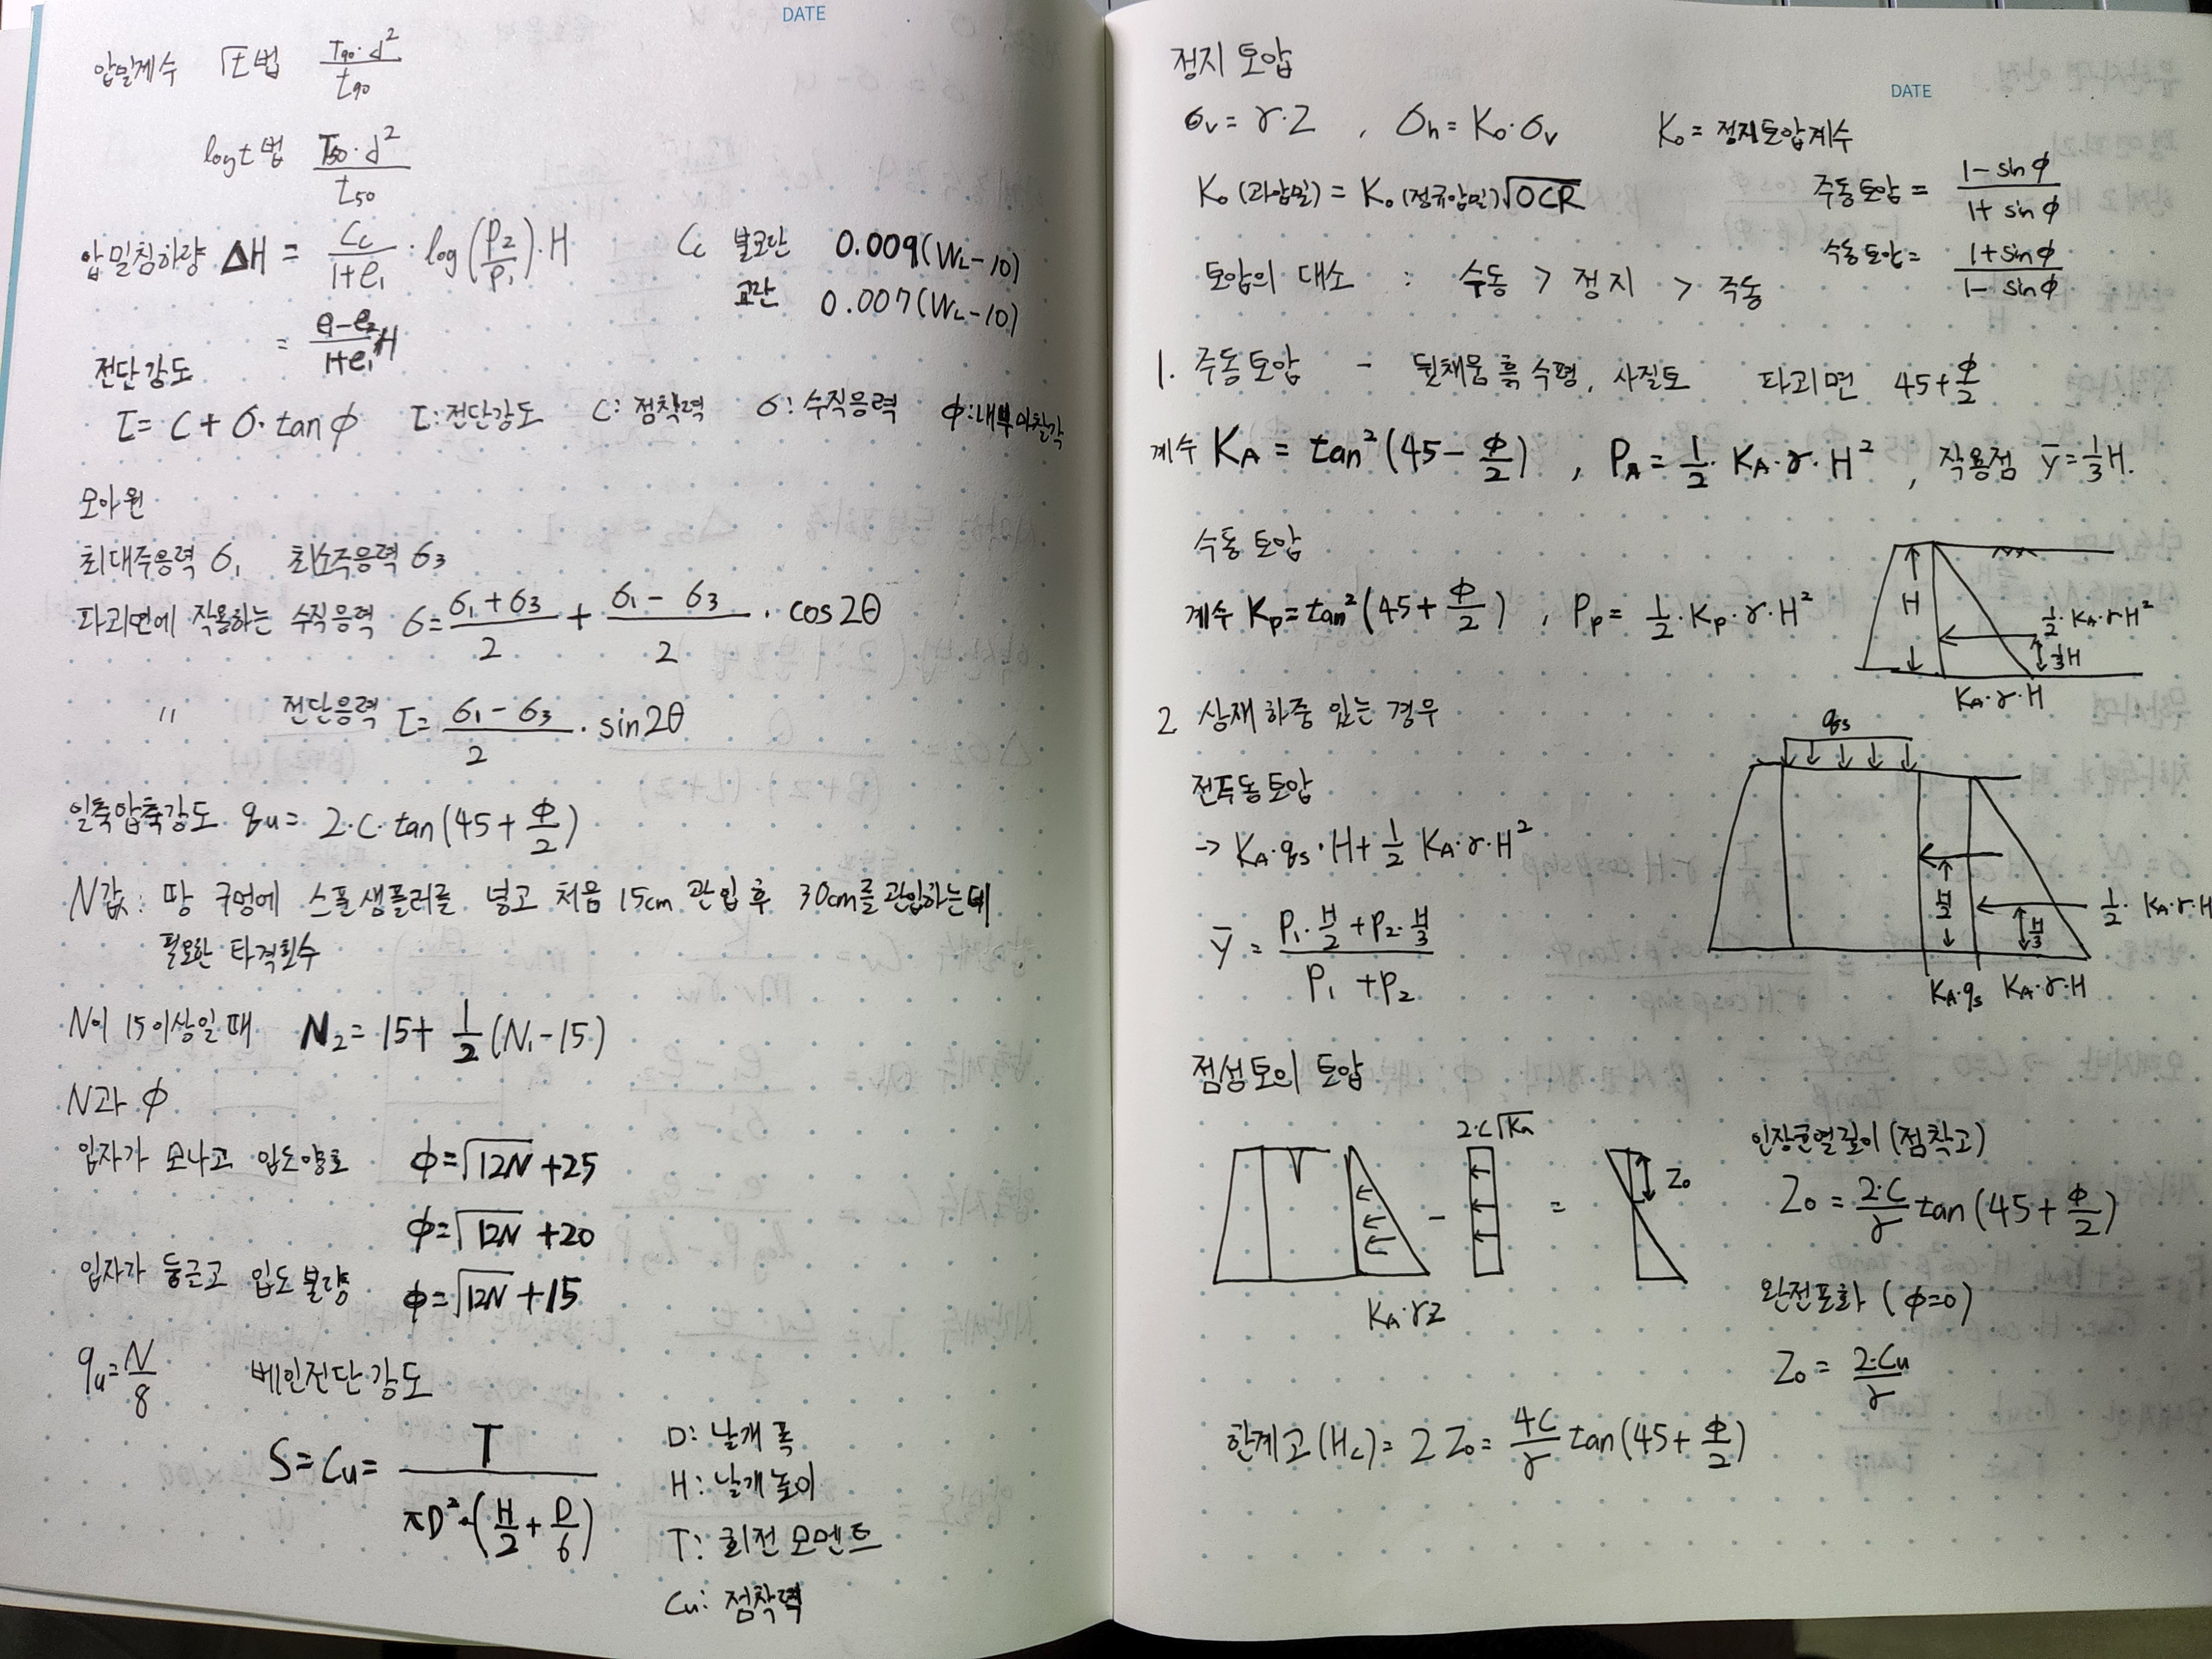 DATE
압밀계수 √t 법 T₉₀·d² / t₉₀
logt 법 T₅₀·d² / t₅₀
압밀침하량 ΔH = Cc / 1+e₁ · log(P₂/P₁)·H
Cc 불교란 0.009(WL-10)
교란 0.007(WL-10)
= e₁-e₂ / 1+e₁ H
전단강도
τ = C + σ·tanφ τ:전단강도 C:점착력 σ:수직응력 φ:내부마찰각
모아원
최대주응력 σ₁ 최소주응력 σ₃
파괴면에 작용하는 수직응력 σ = σ₁+σ₃ / 2 + σ₁-σ₃ / 2 · cos2θ
〃 전단응력 τ = σ₁-σ₃ / 2 · sin2θ
일축압축강도 qu = 2·C·tan(45+φ/2)
N값: 땅 구멍에 스플샘플러를 넣고 처음 15cm 관입 후 30cm를 관입하는데
필요한 타격횟수
N이 15이상일 때 N₂ = 15+ 1/2 (N₁-15)
N과 φ
입자가 모나고 입도양호 φ=√12N +25
φ=√12N +20
입자가 둥근고 입도불량 φ=√12N +15
qu=N/8 베인전단강도
S = Cu = T / πD²·(H/2 + D/6)
D: 날개 폭
H: 날개높이
T: 회전 모멘트
Cu: 점착력
DATE
정지 토압
σv = γ·Z , σh = K₀·σv K₀ = 정지토압계수
K₀(과압밀) = K₀(정규압밀)√OCR
주동토압 = 1-sinφ / 1+sinφ
수동토압 = 1+sinφ / 1-sinφ
토압의 대소 : 수동 > 정지 > 주동
1. 주동토압 - 뒷채움 흙 수평, 사질토 파괴면 45+φ/2
계수 KA = tan²(45-φ/2) , PA = 1/2·KA·γ·H² , 작용점 ȳ=1/3H.
수동 토압
계수 Kp = tan²(45+φ/2) , Pp = 1/2·Kp·γ·H²
H
1/2·KA·γ·H²
1/3H
KA·γ·H
2 상재 하중 있는 경우
전주동토압
→ KA·qs·H + 1/2 KA·γ·H²
ȳ = P₁·H/2 + P₂·H/3 / P₁+P₂
qs
H/2
H/3
1/2·KA·γ·H
KA·qs KA·γ·H
점성토의 토압
2·C√Ka
- = Z₀
KA·γZ
인장균열깊이(점착고)
Z₀ = 2·C/γ tan(45+φ/2)
완전포화 (φ=0)
Z₀ = 2·Cu/γ
한계고(Hc) = 2Z₀ = 4C/γ tan(45+φ/2)